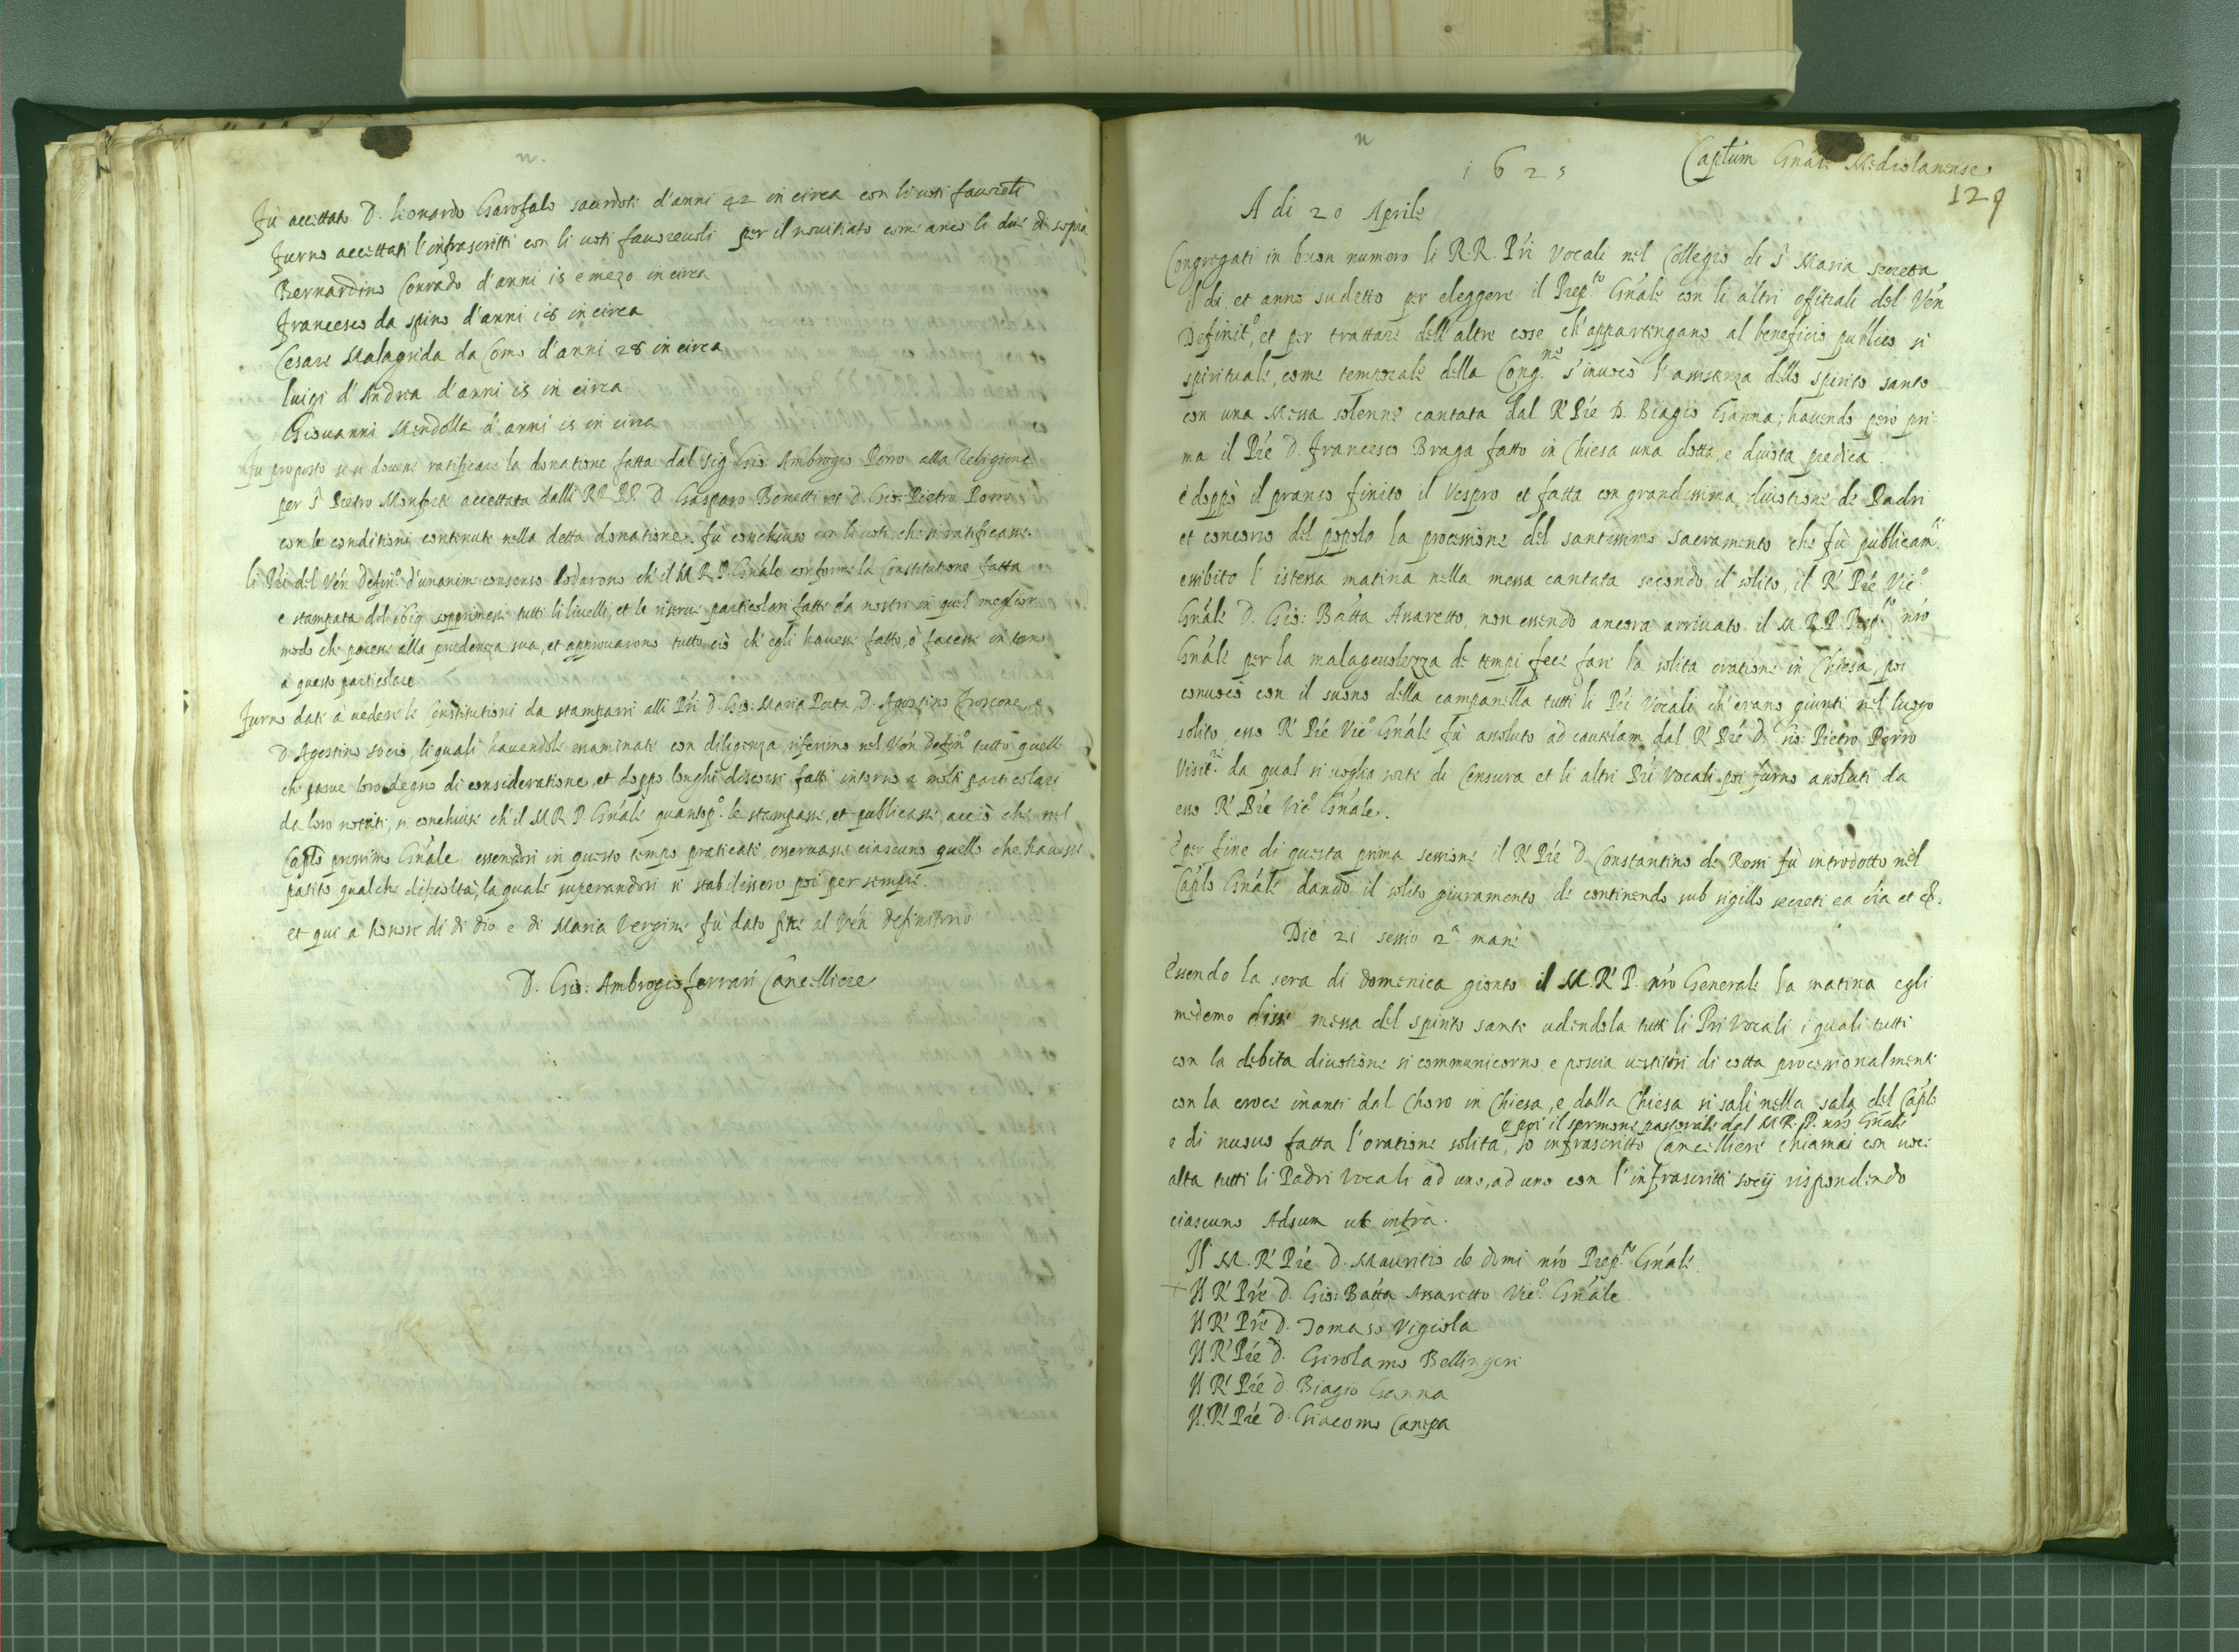 n.
Fù accettato D. Leonardo Garofalo sacerdote d'anni 42 in circa con li voti favoreli
furno accettati l'infrascritti con li voti favorevoli per il novitiato come anco li due di sopra
Bernardino Conrado d'anni 15 e mezo in circa
Francesco da spino d'anni 18 in circa
Cesare Malagrida da Como d'anni 28 in circa
Luigi d'Andrea d'anni 15 in circa
Giovanni Mendolla d'anni 15 in circa
Fu proposto se si doveva ratificare la donatione fatta dal Sig.r Gio: Ambrogio Porro alla Religione
per S. Pietro Monforte accettata dalli RR PP. D. Gasparo Bonetti et D. Gio: Pietro Porro
con le conditioni contenute nella detta donatione. fù conchiuso con li voti, che si ratificasse.
li Pri del Ven Defin.o d'unanime consenso lodarono ch'il M.R.P. Gnale conforme la Constitutione fatta
e stampata del 1619 sopprimesse tutti li livelli, et le riserve particolari fatte da nostri in quel meglior
modo che paresse alla prudenza sua, et approuarono tutto ciò ch'egli havesse fatto, ò facesse intorno
a questo particolare
furno date à vedere le Constitutioni da stamparsi alli Pri D. Gio: Maria Porta, D. Agostino Froscone, e
D. Agostino socio, li quali havendole essaminate con diligenza, riferirno nel Ven Defin.o tutto quell
che parve loro degno di consideratione, et doppo longhi discorsi fatti intorno a molti particolari
da loro notati, si conchiuse ch'il M R P Gnale quanto p.o le stampasse, et publicasse, acciò che nel
Caplo prossimo Gnale essendosi in questo tempo praticate osservasse ciascuno quello che havesse
patito qualche dificoltà, la quale superandosi si stabilissero poi per sempre.
et qui a honore di di Dio e di Maria Vergine fù dato fine al Ven Definitorio
D. Gio: Ambrogio Ferrari Cancelliere
n
1625
Captum Gnale Mediolanense
129
A di 20 Aprile
Congregati in buon numero li R.R. Pri Vocali nel Collegio di S. Maria secreta
il di et anno sudetto per eleggere il Prep.to Gnale con li altri offitiali del Ven
Definit.o, et per trattare dell'altre cose ch'appartengano al beneficio publico si
spirituale, come temporale della Cong.ne s'invocò l'assistenza dello spirito santo
con una Messa solenne cantata dal R. Pre D. Biagio Ganna; havendo però pri
ma il Pre D. Francesco Braga fatto in Chiesa una dotta e divota predica.
è doppò il pranso finito il Vespro et fatta con grandissima divotione de Padri
et concorso del popolo la processione del santissimo sacramento che fù publicam.te
essibito l'istessa matina nella messa cantata secondo il solito, il R. Pre Vic.o
Gnale D. Gio: Batta Assaretto, non essendo ancora arrivato il M.R.P. Prep.to nro
Gnale per la malagevolezza de tempi fece fare la solita oratione in Chiesa, poi
convocò con il suono della campanella tutti li Pri Vocali ch'erano giunti nel luogo
solito, esso R. Pre Vic.o Gnale fù assoluto ad cautelam dal R. Pre D. Gio: Pietro Porro
Visit.re da qual si voglia sorte di Censura et li altri Pri Vocali poi furno assoluti da
esso R. Pre Vic.o Gnale.
E per fine di questa prima sessione il R. Pre D. Constantino de Rossi fù introdotto nel
Caplo Gnale dando il solito giuramento de continendo sub sigillo secreti ea oia et &.
Die 21 sessio 2.a mane
Essendo la sera di Domenica gionto il M.R. P. nro Generale la matina egli
medemo disse messa del spirito santo udendola tutti li Pri Vocali i quali tutti
con la debita divotione si communicorno, e poscia vestitisi di cotta processionalmente
con la croce inanti dal Choro in Chiesa, e dalla Chiesa si salì nella sala del Caplo
e poi il sermone pastorale dal M.R.P. nro Gnale
e di nuovo fatta l'oratione solita, Io infrascritto Cancelliere chiamai con voce
alta tutti li Padri Vocali ad uno, ad uno con l'infrascritti socij rispondendo
ciascuno Adsum ut infra.
Il M. R. Pre D. Mauritio de Domi nro Prep.to Gnale
+ Il R. Pre D. Gio: Batta Assaretto Vic.o Gnale
Il R. Pre D. Tomaso Vigiola
Il R. Pre D. Girolamo Bellingeri
Il R. Pre D. Biagio Ganna
Il R. Pre D. Giacomo Canepa